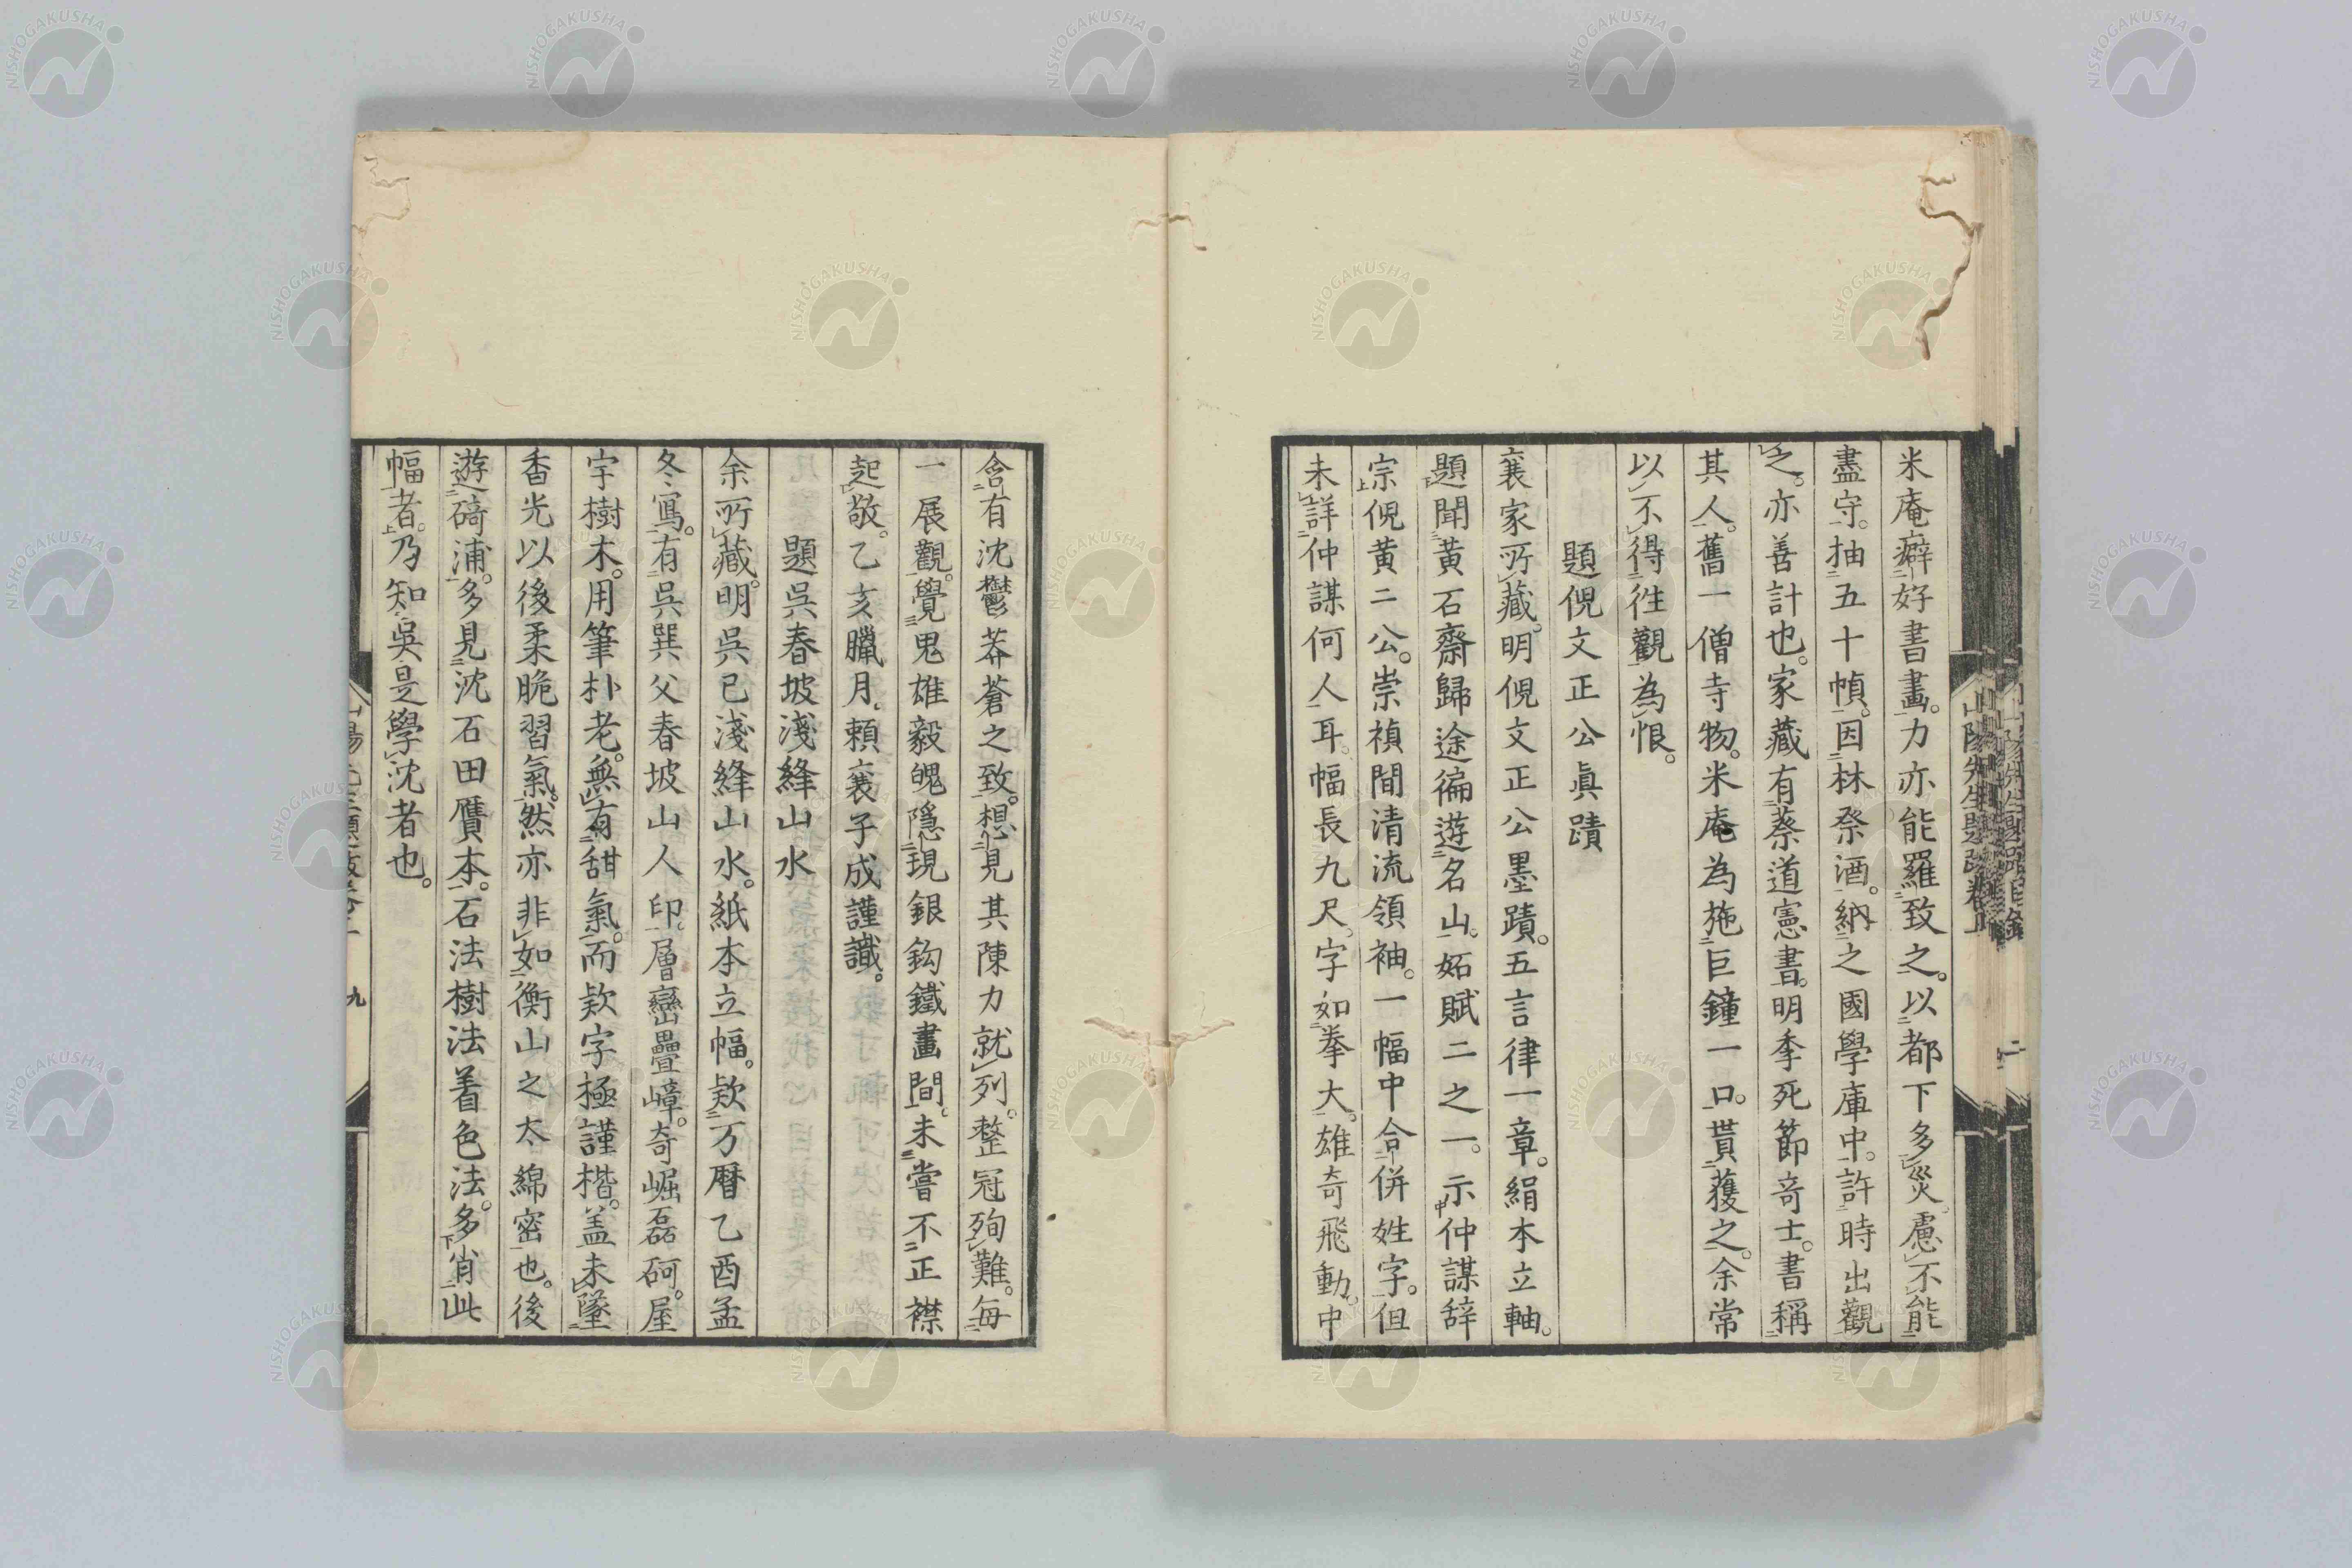 米庵癖好書畫。力亦能羅致之。以都下多災。慮不能
盡守。抽五十幀。因林祭酒。納之國學庫中。許時出觀
之。亦善計也。家藏有蔡道憲書。明季死節奇士。書稱
其人。舊一僧寺物。米庵為施巨鐘一口。貰獲之。余常
以不得往觀為恨。
題倪文正公眞蹟
襄家所藏。明倪文正公墨蹟。五言律一章。絹本立軸。
題聞黃石齋歸途徧遊名山。妬賦二之一。示仲謀辞
宗倪黄二公。崇禎間清流領袖。一幅中合併姓字。但
未詳仲謀何人耳。幅長九尺。字如拳大。雄奇飛動。中
含有沈鬱莽蒼之致。想見其陳力就列。整冠殉難。每
一展觀。覺鬼雄毅魄隱現銀鈎鐵畫間。未嘗不正襟
起敬。乙亥臘月。賴襄子成謹識。
題吳春坡淺絳山水
余所藏。明吳已淺絳山水。紙本立幅。欵万暦乙酉孟
冬寫。有吳巽父春坡山人印。層巒疊嶂。奇崛磊砢。屋
宇樹木。用筆朴老。無有甜氣。而欵字極謹楷。盖未墜
香光以後柔脆習氣。然亦非如衡山之太綿密也。後
遊碕浦。多見沈石田贋本。石法樹法着色法。多肖此
幅者。乃知吳是學沈者也。
九
山陽先生題跋卷上